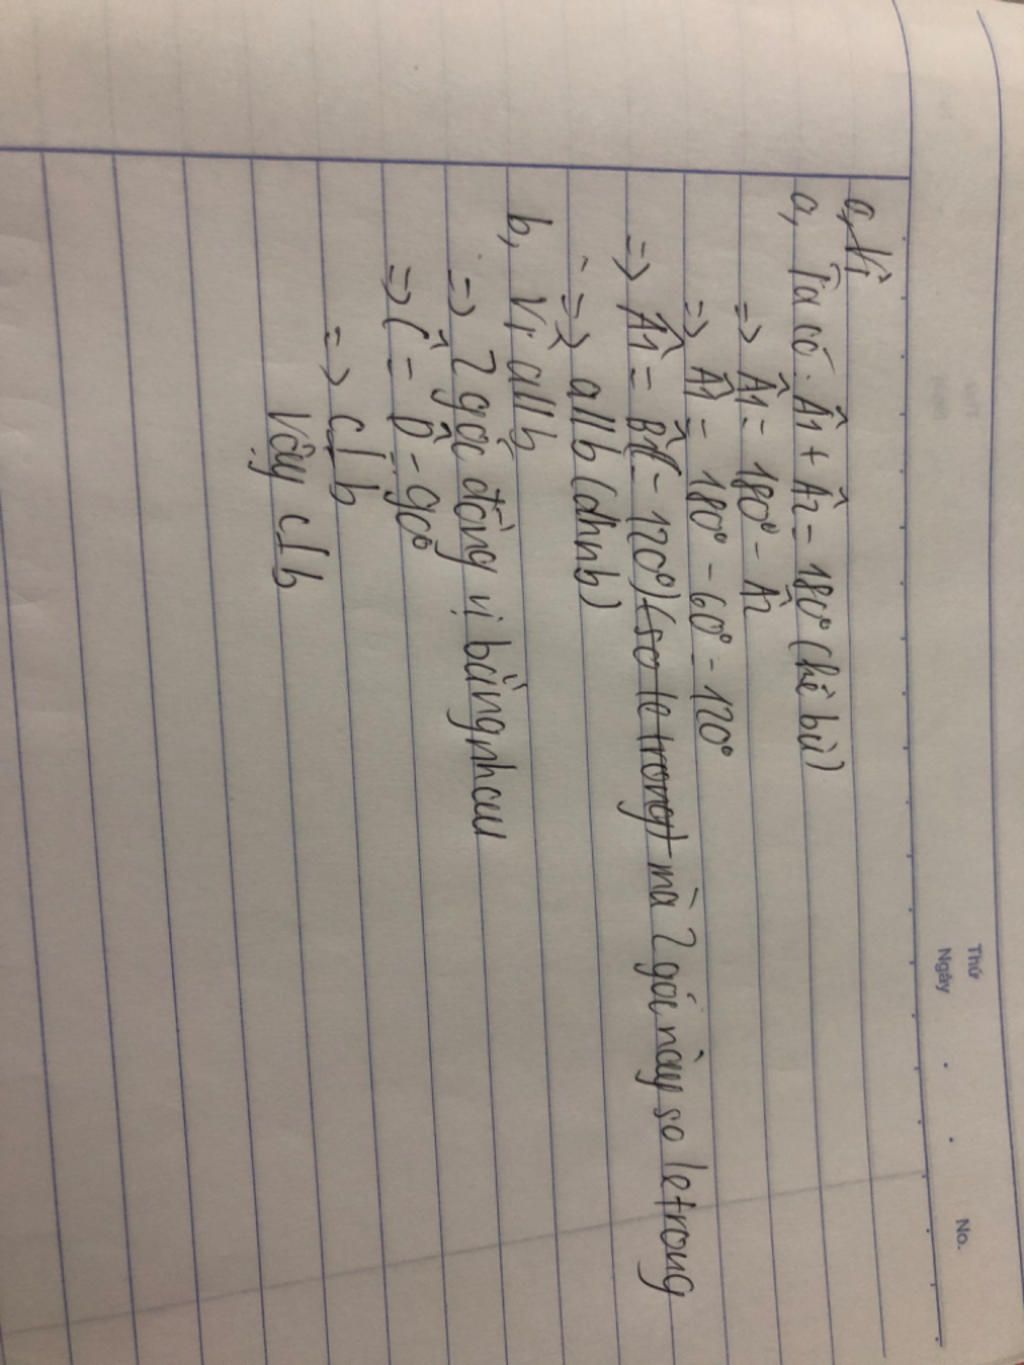 Thứ
Ngày
No.
a, Vì
a, Ta có: Â1 + Â2 = 180° (kề bù)
=> Â1 = 180° - Â2
=> Â1 = 180° - 60° = 120°
=> Â1 = B̂1 = 120° (so le trong) mà 2 góc này so le trong
=> a//b (dhnb)
b, Vì a//b
=> 2 góc đồng vị bằng nhau
=> Ĉ = D̂ = 90°
=> c⊥b
Vậy c⊥b